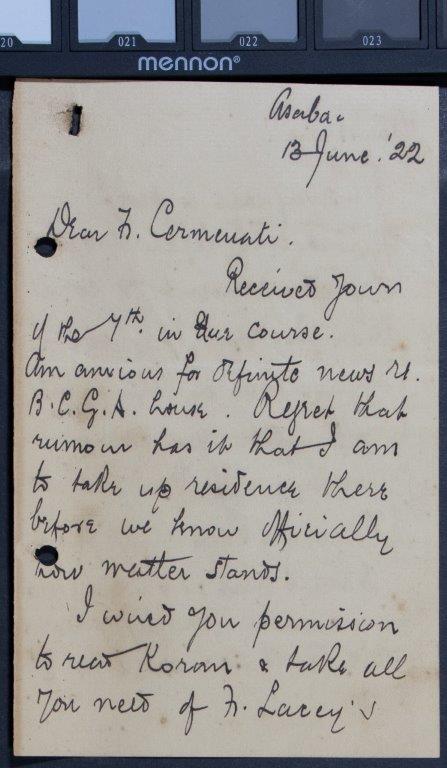 020 021 022 023
mennon®
Asaba.
13 June. '22
Dear Fr. Cermenati.
Received yours
of the 7th. in due course.
Am anxious for definite news re.
B.C.G.A. house. Regret that
rumour has it that I am
to take up residence there
before we know officially
how matter stands.
I wired you permission
to read Koran & take all
you need of Fr. Lacey's